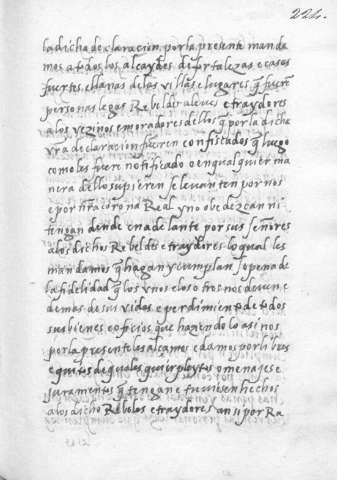 224.
la dicha declaracion, por la presente manda
mos a todos los alcaydes de fortalezas e casas
fuertes e llanas de las villas e lugares q̃ fueren
personas legas Rebeldes aleves e traydores
a los vezinos e moradores dellos q̃ por la dicha
n̄ra declaracion fueren confiscados q̃ luego
como les fuere notificado o en qualquier ma
nera dello supieren se levanten por nos
e por n̄ra corona Real y no obedezcan ni
tengan dende en adelante por sus señores
a los dichos Rebeldes e traydores lo qual les
mandamos q̃ hagan y cumplan so pena de
la fidelidad q̃ los vnos e los otros nos deuen e
demas de sus vidas e perdimiento de todos
sus bienes e oficios que haziendolo asi nos
por la presente les alçamos e damos por libres
e quitos de qualesquier pleytos omenajes e
juramentos q̃ tengan e tuviesen hechos
a los dichos Rebeldes e traydores ansi por Ra